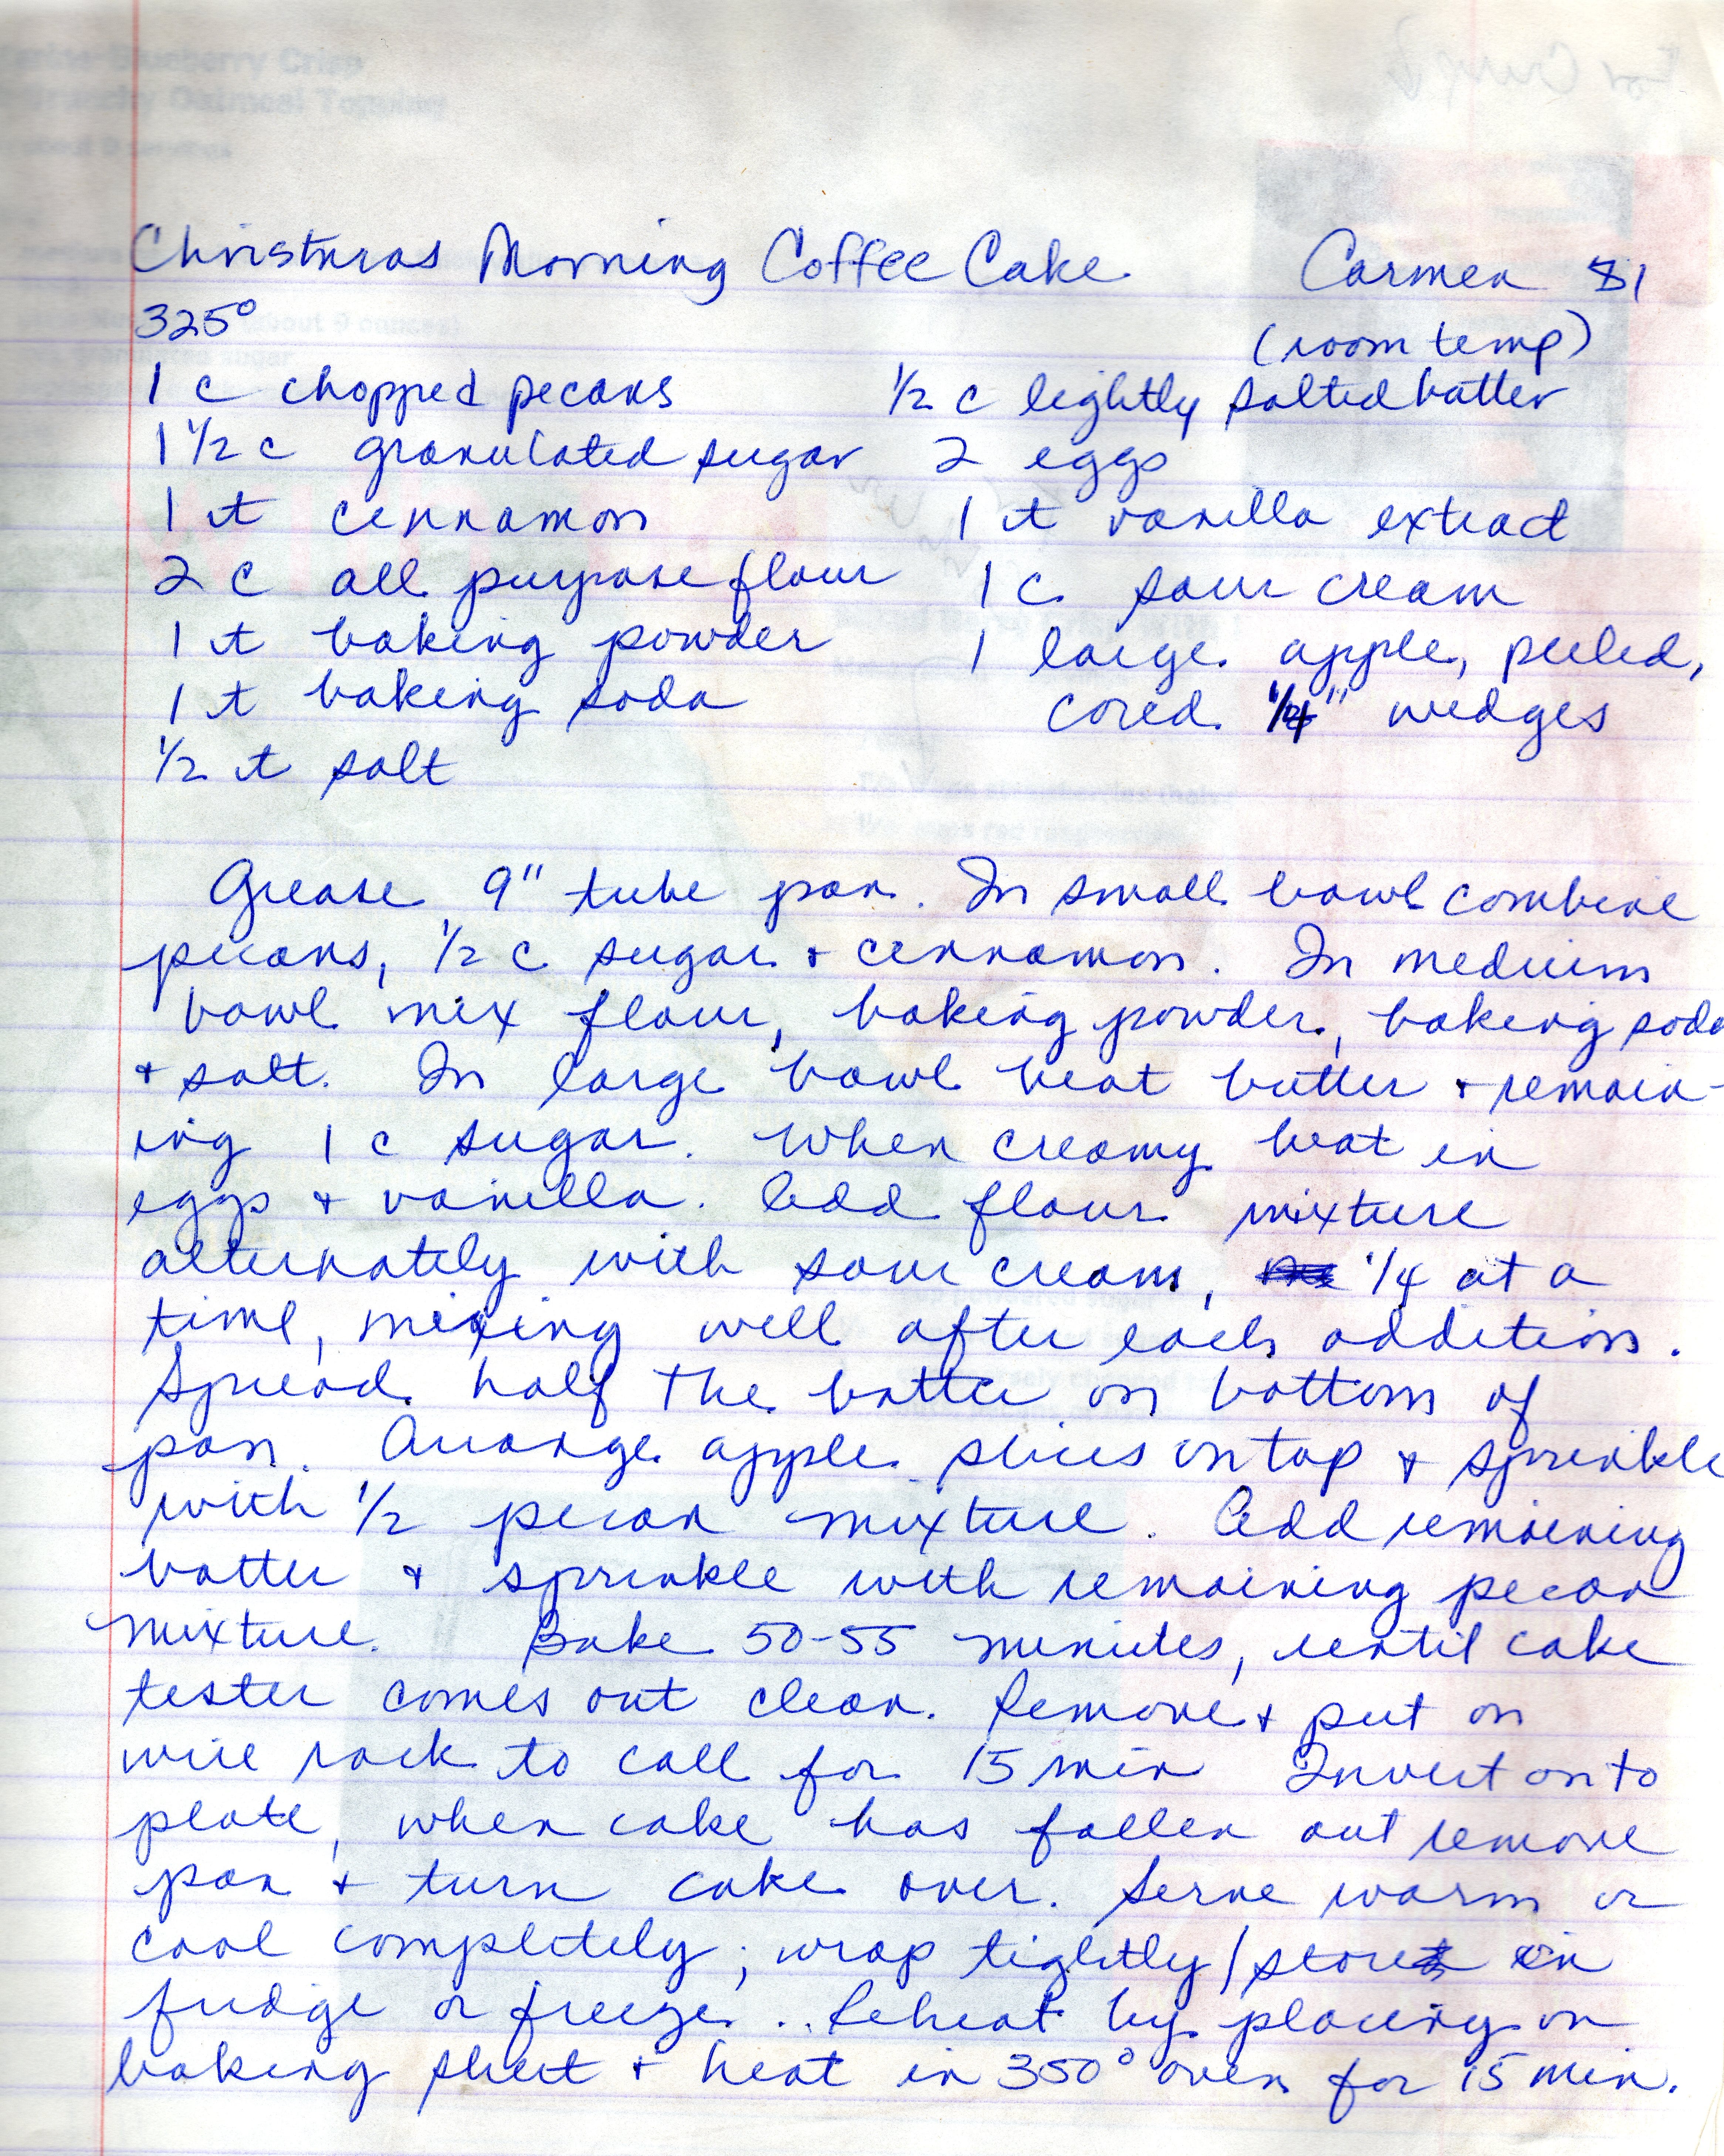 Christmas Morning Coffee Cake Carmen 81
325°
(room temp)
1 c chopped pecans
1 1/2 c granulated sugar
1 t cinnamon
2 c all purpose flour
1 t baking powder
1 t baking soda
1/2 t salt
1/2 c lightly salted butter
2 eggs
1 t vanilla extract
1 c. sour cream
1 large apple, peeled,
cored 1/4" wedges
Grease 9" tube pan. In small bowl combine
pecans, 1/2 c sugar + cinnamon. In medium
bowl mix flour, baking powder, baking soda
+ salt. In large bowl beat butter + remain-
ing 1 c sugar. When creamy beat in
eggs + vanilla. Add flour mixture
alternately with sour cream, 1/4 at a
time, mixing well after each addition.
Spread half the batter on bottom of
pan. Arrange apple slices on top + sprinkle
with 1/2 pecan mixture. Add remaining
batter + sprinkle with remaining pecan
mixture. Bake 50-55 minutes, until cake
tester comes out clean. Remove + put on
wire rack to call for 15 min Invert onto
plate, when cake has fallen out remove
pan + turn cake over. Serve warm or
cool completely; wrap tightly / store in
fridge or freeze... Reheat by placing on
baking sheet + heat in 350° oven for 15 min.